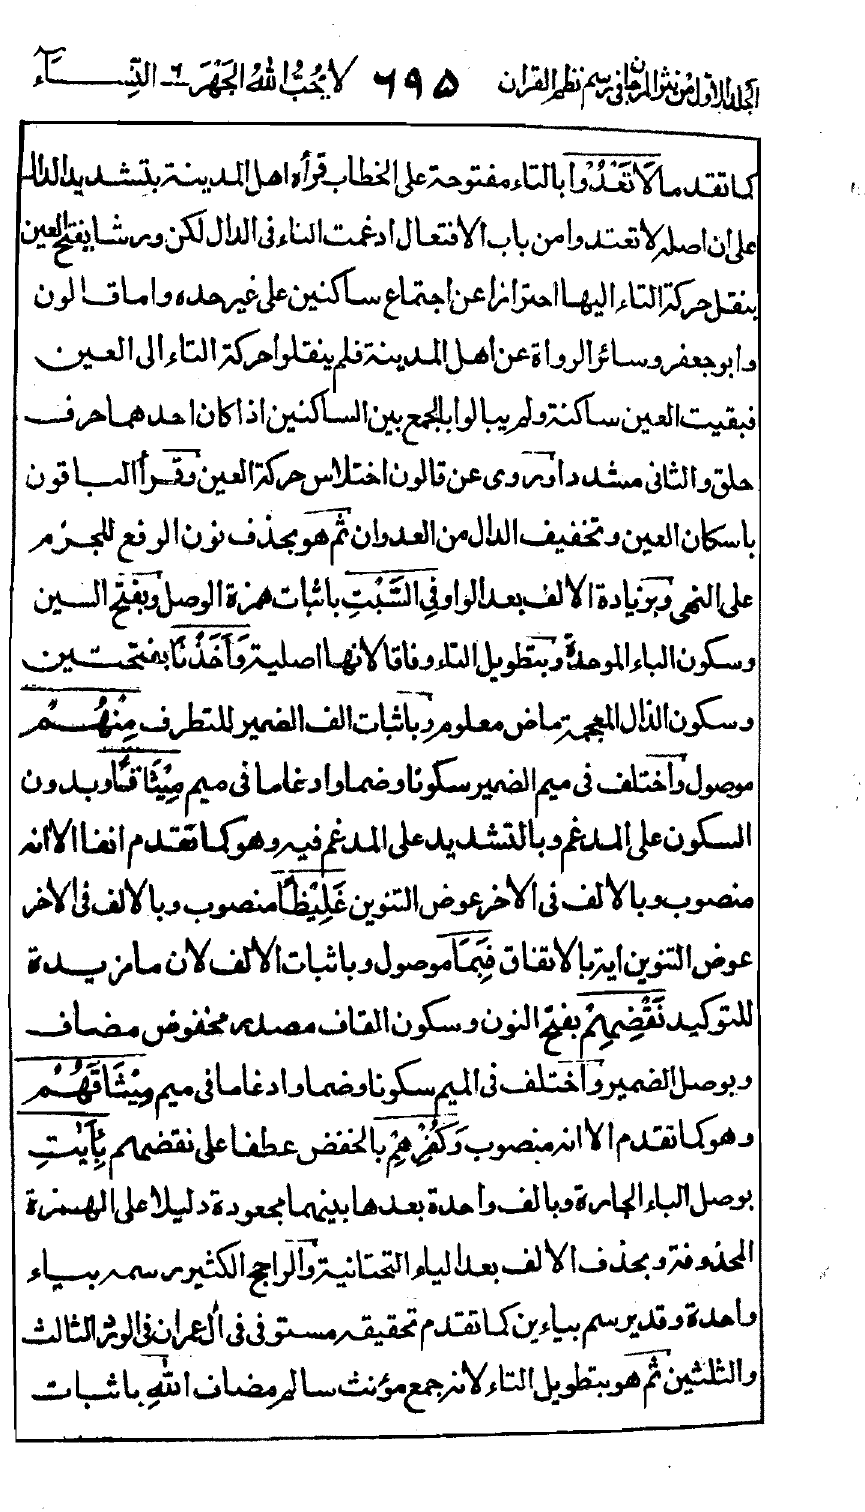 الجلد الاول من نثر المرجان في رسم نظم القران ٦٩۵ لا يُحِبُّ اللهُ الجَهْرَ ٦ النِّسَآء
كما تقدم ما لَا تَعْدُوا بالتاء مفتوحة على الخطاب قرأه اهل المدينة بتشديد الدال
على ان اصله لا تعتدوا من باب الافتعال ادغمت التاء فى الدال لكن ورشا يفتح العين
بنقل حركة التاء اليها احترازا عن اجتماع ساكنين على غير حده واما قالون
وابو جعفر وسائر الرواة عن اهل المدينة فلم ينقلوا حركة التاء الى العين
فبقيت العين ساكنة ولم يبالوا بالجمع بين الساكنين اذا كان احدهما حرف
حلق والثانى مشددا وروى عن قالون اختلاس حركة العين وقرأ الباقون
باسكان العين وتخفيف الدال من العدوان ثم هو بحذف نون الرفع للجزم
على النهى وبزيادة الالف بعد الواو فِي السَّبْتِ باثبات همزة الوصل وبفتح السين
وسكون الباء الموحدة وبتطويل التاء وفاقا لانها اصلية وَأَخَذْنَا بفتحتين
وسكون الذال المعجمة ماض معلوم وباثبات الف الضمير للتطرف مِنْهُمْ
موصول واختلف فى ميم الضمير سكونا وضما وادغاما فى ميم مِيْثَاقًا وبدون
السكون على المدغم وبالتشديد على المدغم فيه وهو كما تقدم انفا الا انه
منصوب وبالالف فى الاخر عوض التنوين غَلِيْظًا منصوب وبالالف فى الاخر
عوض التنوين اية بالاتفاق فَبِمَا موصول وباثبات الالف لان ما مزيدة
للتوكيد نَقْضِهِمْ بفتح النون وسكون القاف مصدر مخفوض مضاف
وبوصل الضمير واختلف فى الميم سكونا وضما وادغاما فى ميم مِيْثَاقَهُمْ
وهو كما تقدم الا انه منصوب وَكُفْرِهِمْ بالخفض عطفا على نقضهم بِأٰيٰتِ
بوصل الباء الجارة وبالف واحدة بعدها بينهما مجعودة دليلا على الهمزة
المحذوفة وبحذف الالف بعد الياء التحتانية والراجح الكثير رسمه بياء
واحدة وقد يرسم بياءين كما تقدم تحقيقه مستوفى فى ال عمران فى الورد الثالث
والثلثين ثم هو بتطويل التاء لانه جمع مؤنث سالم مضاف اللهِ باثبات